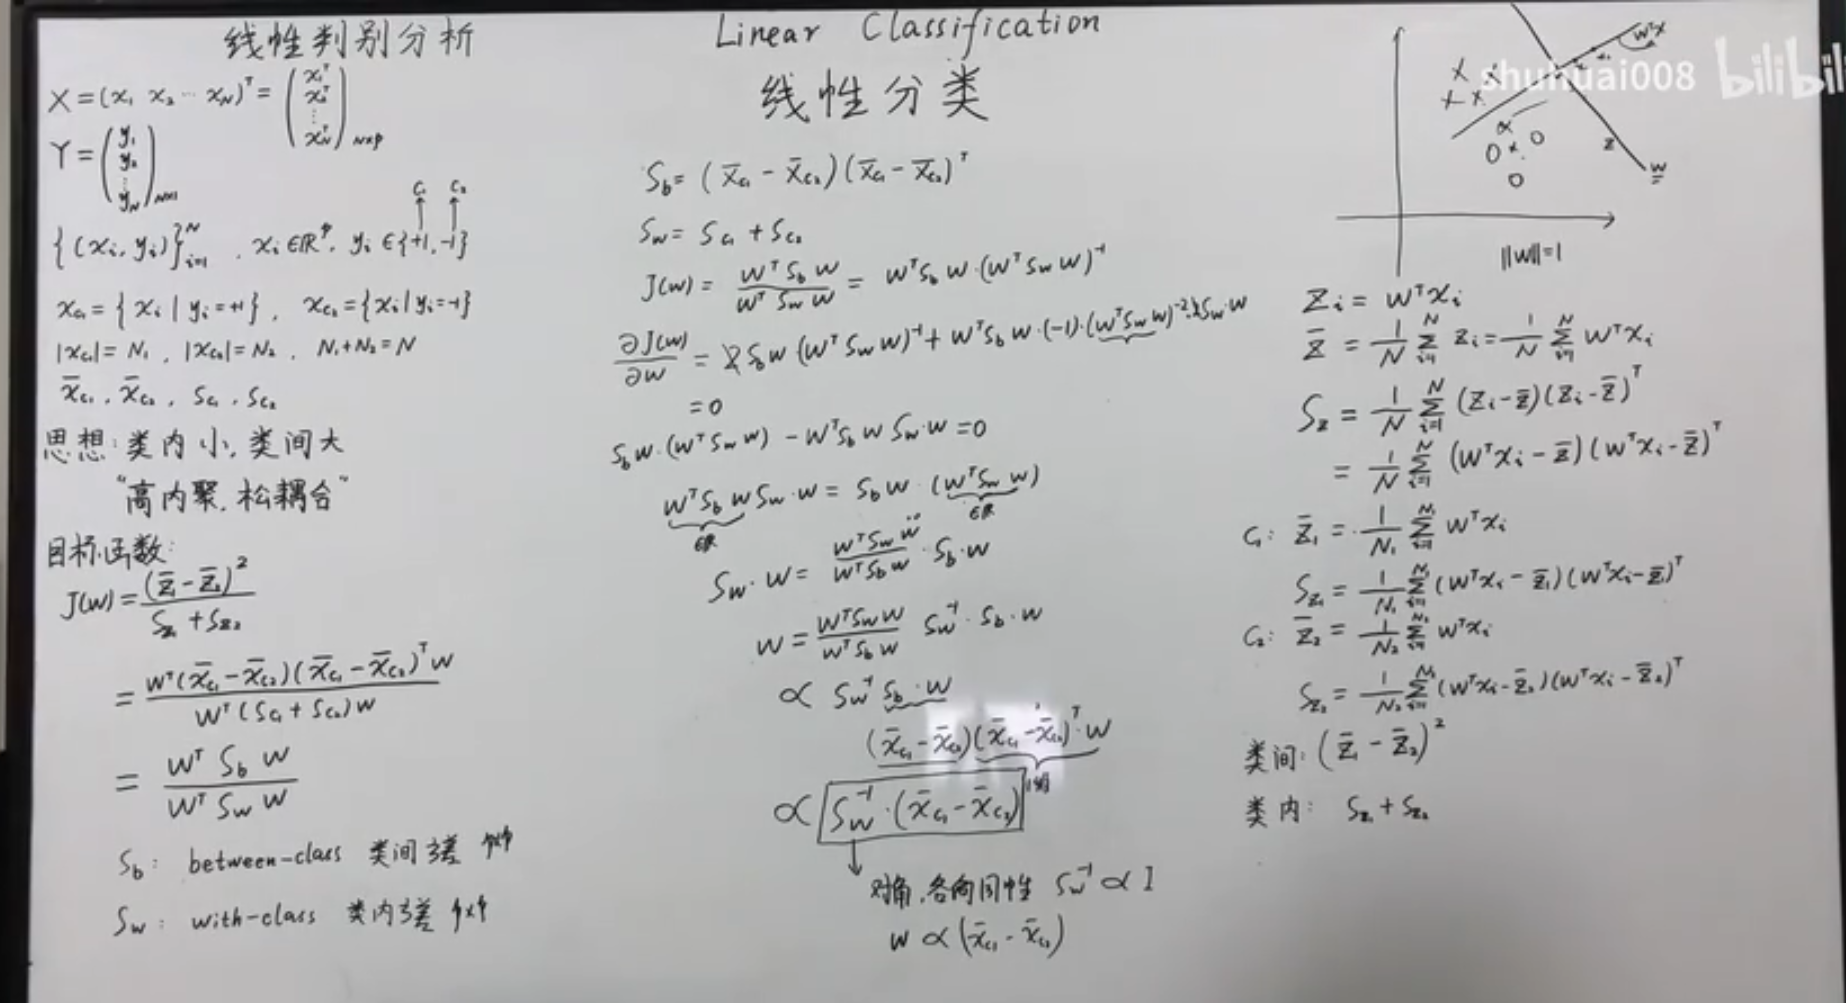 线性判别分析
X = (x₁ x₂ ⋯ x_N)ᵀ = (x₁ᵀ x₂ᵀ ⋮ x_Nᵀ)_{N×p}
Y = (y₁ y₂ ⋮ y_N)_{N×1}
C₁ C₂
{(xᵢ, yᵢ)}ᵢ₌₁ᴺ , xᵢ∈ℝᵖ, yᵢ∈{+1, -1}
x_{c₁} = {xᵢ | yᵢ=+1}, x_{c₂} = {xᵢ | yᵢ=-1}
|x_{c₁}| = N₁, |x_{c₂}| = N₂, N₁+N₂=N
x̄_{c₁}, x̄_{c₂}, S_{c₁}, S_{c₂}
思想: 类内小, 类间大
"高内聚, 松耦合"
目标函数:
J(w) = (z̄₁ - z̄₂)² / (S_{z₁} + S_{z₂})
= wᵀ(x̄_{c₁} - x̄_{c₂})(x̄_{c₁} - x̄_{c₂})ᵀw / wᵀ(S_{c₁} + S_{c₂})w
= wᵀ S_b w / wᵀ S_w w
S_b: between-class 类间方差 p×p
S_w: with-class 类内方差 p×p
Linear Classification
线性分类
S_b = (x̄_{c₁} - x̄_{c₂})(x̄_{c₁} - x̄_{c₂})ᵀ
S_w = S_{c₁} + S_{c₂}
J(w) = wᵀ S_b w / wᵀ S_w w = wᵀS_b w·(wᵀS_w w)⁻¹
∂J(w)/∂w = 2 S_b w (wᵀS_w w)⁻¹ + wᵀS_b w·(-1)·(wᵀS_w w)⁻²·2 S_w·w
= 0
S_b w·(wᵀS_w w) - wᵀS_b w S_w·w = 0
wᵀS_b w S_w·w = S_b w·(wᵀS_w w)
∈ℝ ∈ℝ
S_w·w = wᵀS_w w / wᵀS_b w · S_b·w
w = wᵀS_w w / wᵀS_b w S_w⁻¹·S_b·w
∝ S_w⁻¹ S_b·w
(x̄_{c₁} - x̄_{c₂})(x̄_{c₁} - x̄_{c₂})ᵀ·w
∝ S_w⁻¹·(x̄_{c₁} - x̄_{c₂})
对角, 各向同性 S_w⁻¹ ∝ I
w ∝ (x̄_{c₁} - x̄_{c₂})
shuhuai008 bilibili
wᵀx
z
w
||w||=1
zᵢ = wᵀxᵢ
z̄ = 1/N Σᵢ₌₁ᴺ zᵢ = 1/N Σᵢ₌₁ᴺ wᵀxᵢ
S_z = 1/N Σᵢ₌₁ᴺ (zᵢ - z̄)(zᵢ - z̄)ᵀ
= 1/N Σᵢ₌₁ᴺ (wᵀxᵢ - z̄)(wᵀxᵢ - z̄)ᵀ
C₁: z̄₁ = 1/N₁ Σᵢ₌₁^{N₁} wᵀxᵢ
S_{z₁} = 1/N₁ Σᵢ₌₁^{N₁} (wᵀxᵢ - z̄₁)(wᵀxᵢ - z̄₁)ᵀ
C₂: z̄₂ = 1/N₂ Σᵢ₌₁^{N₂} wᵀxᵢ
S_{z₂} = 1/N₂ Σᵢ₌₁^{N₂} (wᵀxᵢ - z̄₂)(wᵀxᵢ - z̄₂)ᵀ
类间: (z̄₁ - z̄₂)²
类内: S_{z₁} + S_{z₂}